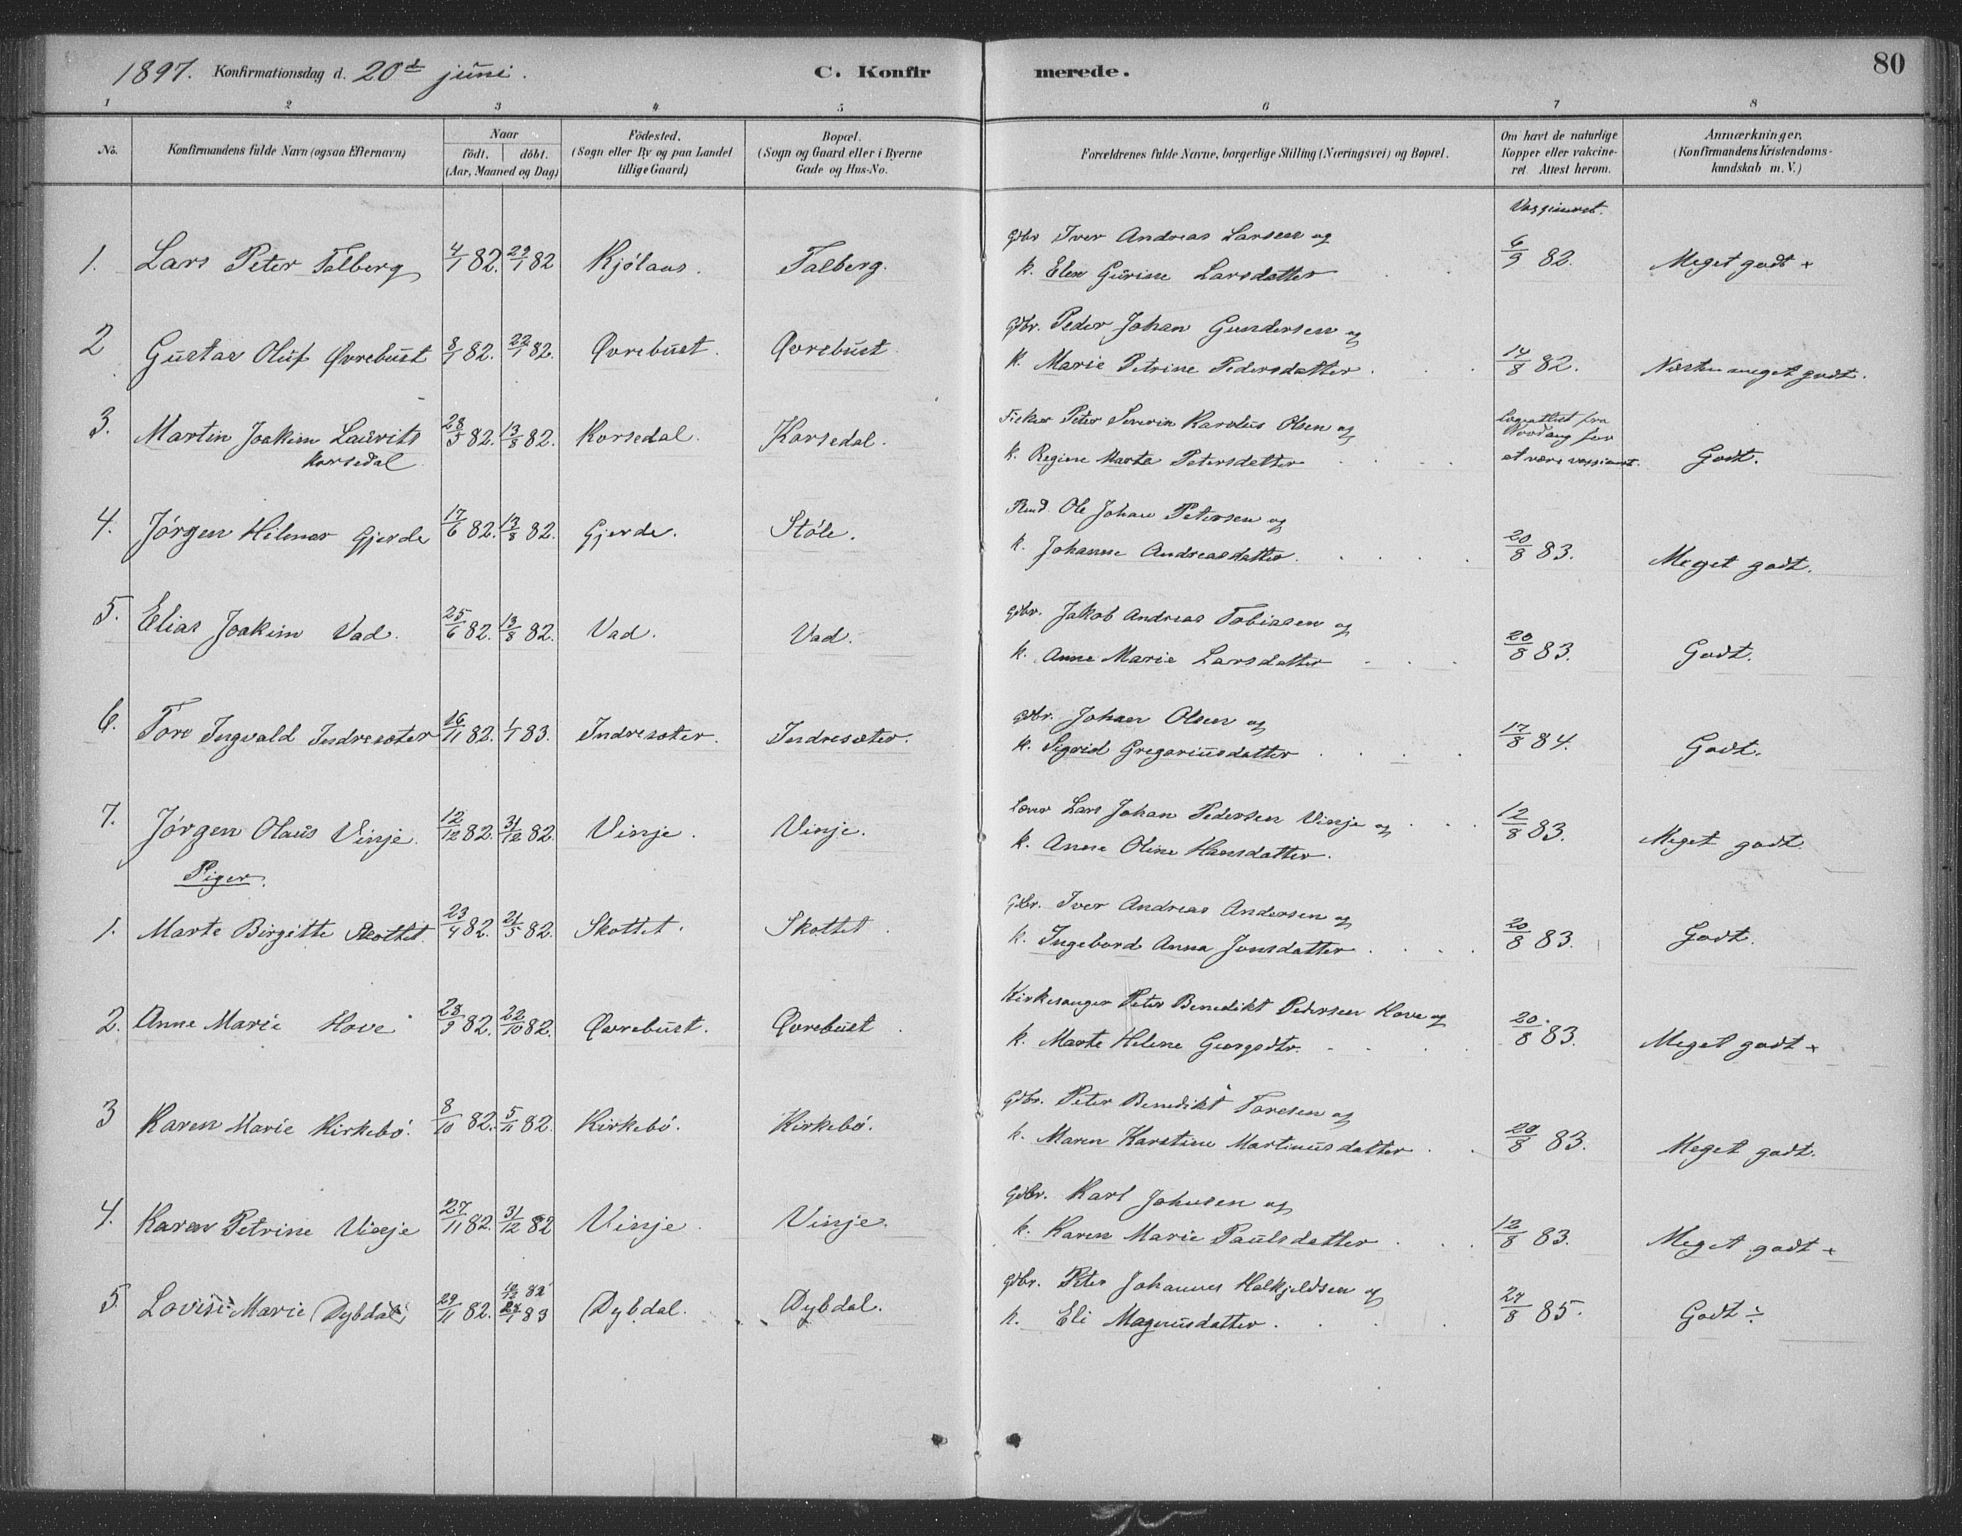 1897. Konfirmationsdag d. 20d juni. C. Konfirmerede. 80
1 2 3 4 5 6 7 8
No. Konfirmandens fulde Navn (ogsaa Efternavn) Naar födt. döbt. (Aar, Maaned og Dag) Födested. (Sogn eller By og paa Landet tillige Gaard) Bopæl. (Sogn og Gaard eller i Byerne Gade og Hus-No. Forældrenes fulde Navne, borgerlige Stilling (Næringsvei) og Bopæl. Om havt de naturlige Kopper eller vakcineret. Attest herom. Anmærkninger. (Konfirmandens Kristendomskundskab m. V.)
1. Lars Peter Talberg 4/1 82. 29/1 82 Kjólaas. Talberg. Gbr Iver Andreas Larsen og
k. Elen Gurine Larsdatter 6/9 82. Meget godt +
2 Gustav Oluf Øvrebust 8/1 82. 22/1 82. Øvrebust. Øvrebust Gbr. Peder Johan Gundersen og
k. Marie Petrine Pedersdatter. 14/8 82. Næsten meget godt.
3. Martin Joakim Laurits 28/5 82. 13/8 82. Korsedal. Korsedal. Fisker Peter Severin Karolus Olsen og
Korsedal k. Regine Marta Petersdatter Godt.
4. Jórgen Hilmar Gjerde 17/6 82. 13/8 82. Gjerde. Stóle. Ole Johan Petersen og
k. Johanne Andreasdatter. 20/8 83. Meget godt.
5. Elias Joakim Vad. 25/6 82. 13/8 82. Vad. Vad. Gbr. Jakob Andreas Tobiassen og
k. Anne Marie Larsdatter 20/8 83. Godt.
6. Tore Ingvald Indresæter 16/11 82. 1/1 83. Indresæter. Indresæter. Gbr. Johan Olsen og
k. Sigrid Gregoriusdatter 17/8 84. Godt.
7. Jórgen Olaus Vinje. 12/12 82. 31/12 82. Vinje. Vinje. Lars Johan Pedersen Vinje og
k. Anne Oline Hansdatter. 12/8 83. Meget godt.
Piger.
1. Marte Birgitte Skottet. 23/4 82. 21/5 82. Skottet. Skottet. Gbr. Iver Andreas Andersen og
k. Ingebord Anna Jonsdatter. 20/8 83. Godt.
2. Anne Marie Hove 28/9 82. 22/10 82. Øvrebust. Øvrebust. Kirkesanger Peter Benedikt Pedersen Hove og
k. Marte Helene Georgsdtr. 20/8 83. Meget godt +
3 Karen Marie Kirkebó. 8/10 82. 5/11 82. Kirkebó. Kirkebó. Gbr. Peter Benedikt Toresen og
k. Maren Karstine Martinusdatter 20/8 83. Meget godt.
4. Karen Petrine Vinje 27/11 82. 31/12 82 Vinje. Vinje. Gbr. Karl Johnsen og
k. Karen Marie Paulsdatter 12/8 83. Meget godt +
5. Lovise Marie Dybdal 29/11 82. 83 Dybdal. Dybdal. Gbr. Peter Johannes Halkjeldsen og
k. Eli Magnusdatter. 24/8 85. Godt ÷